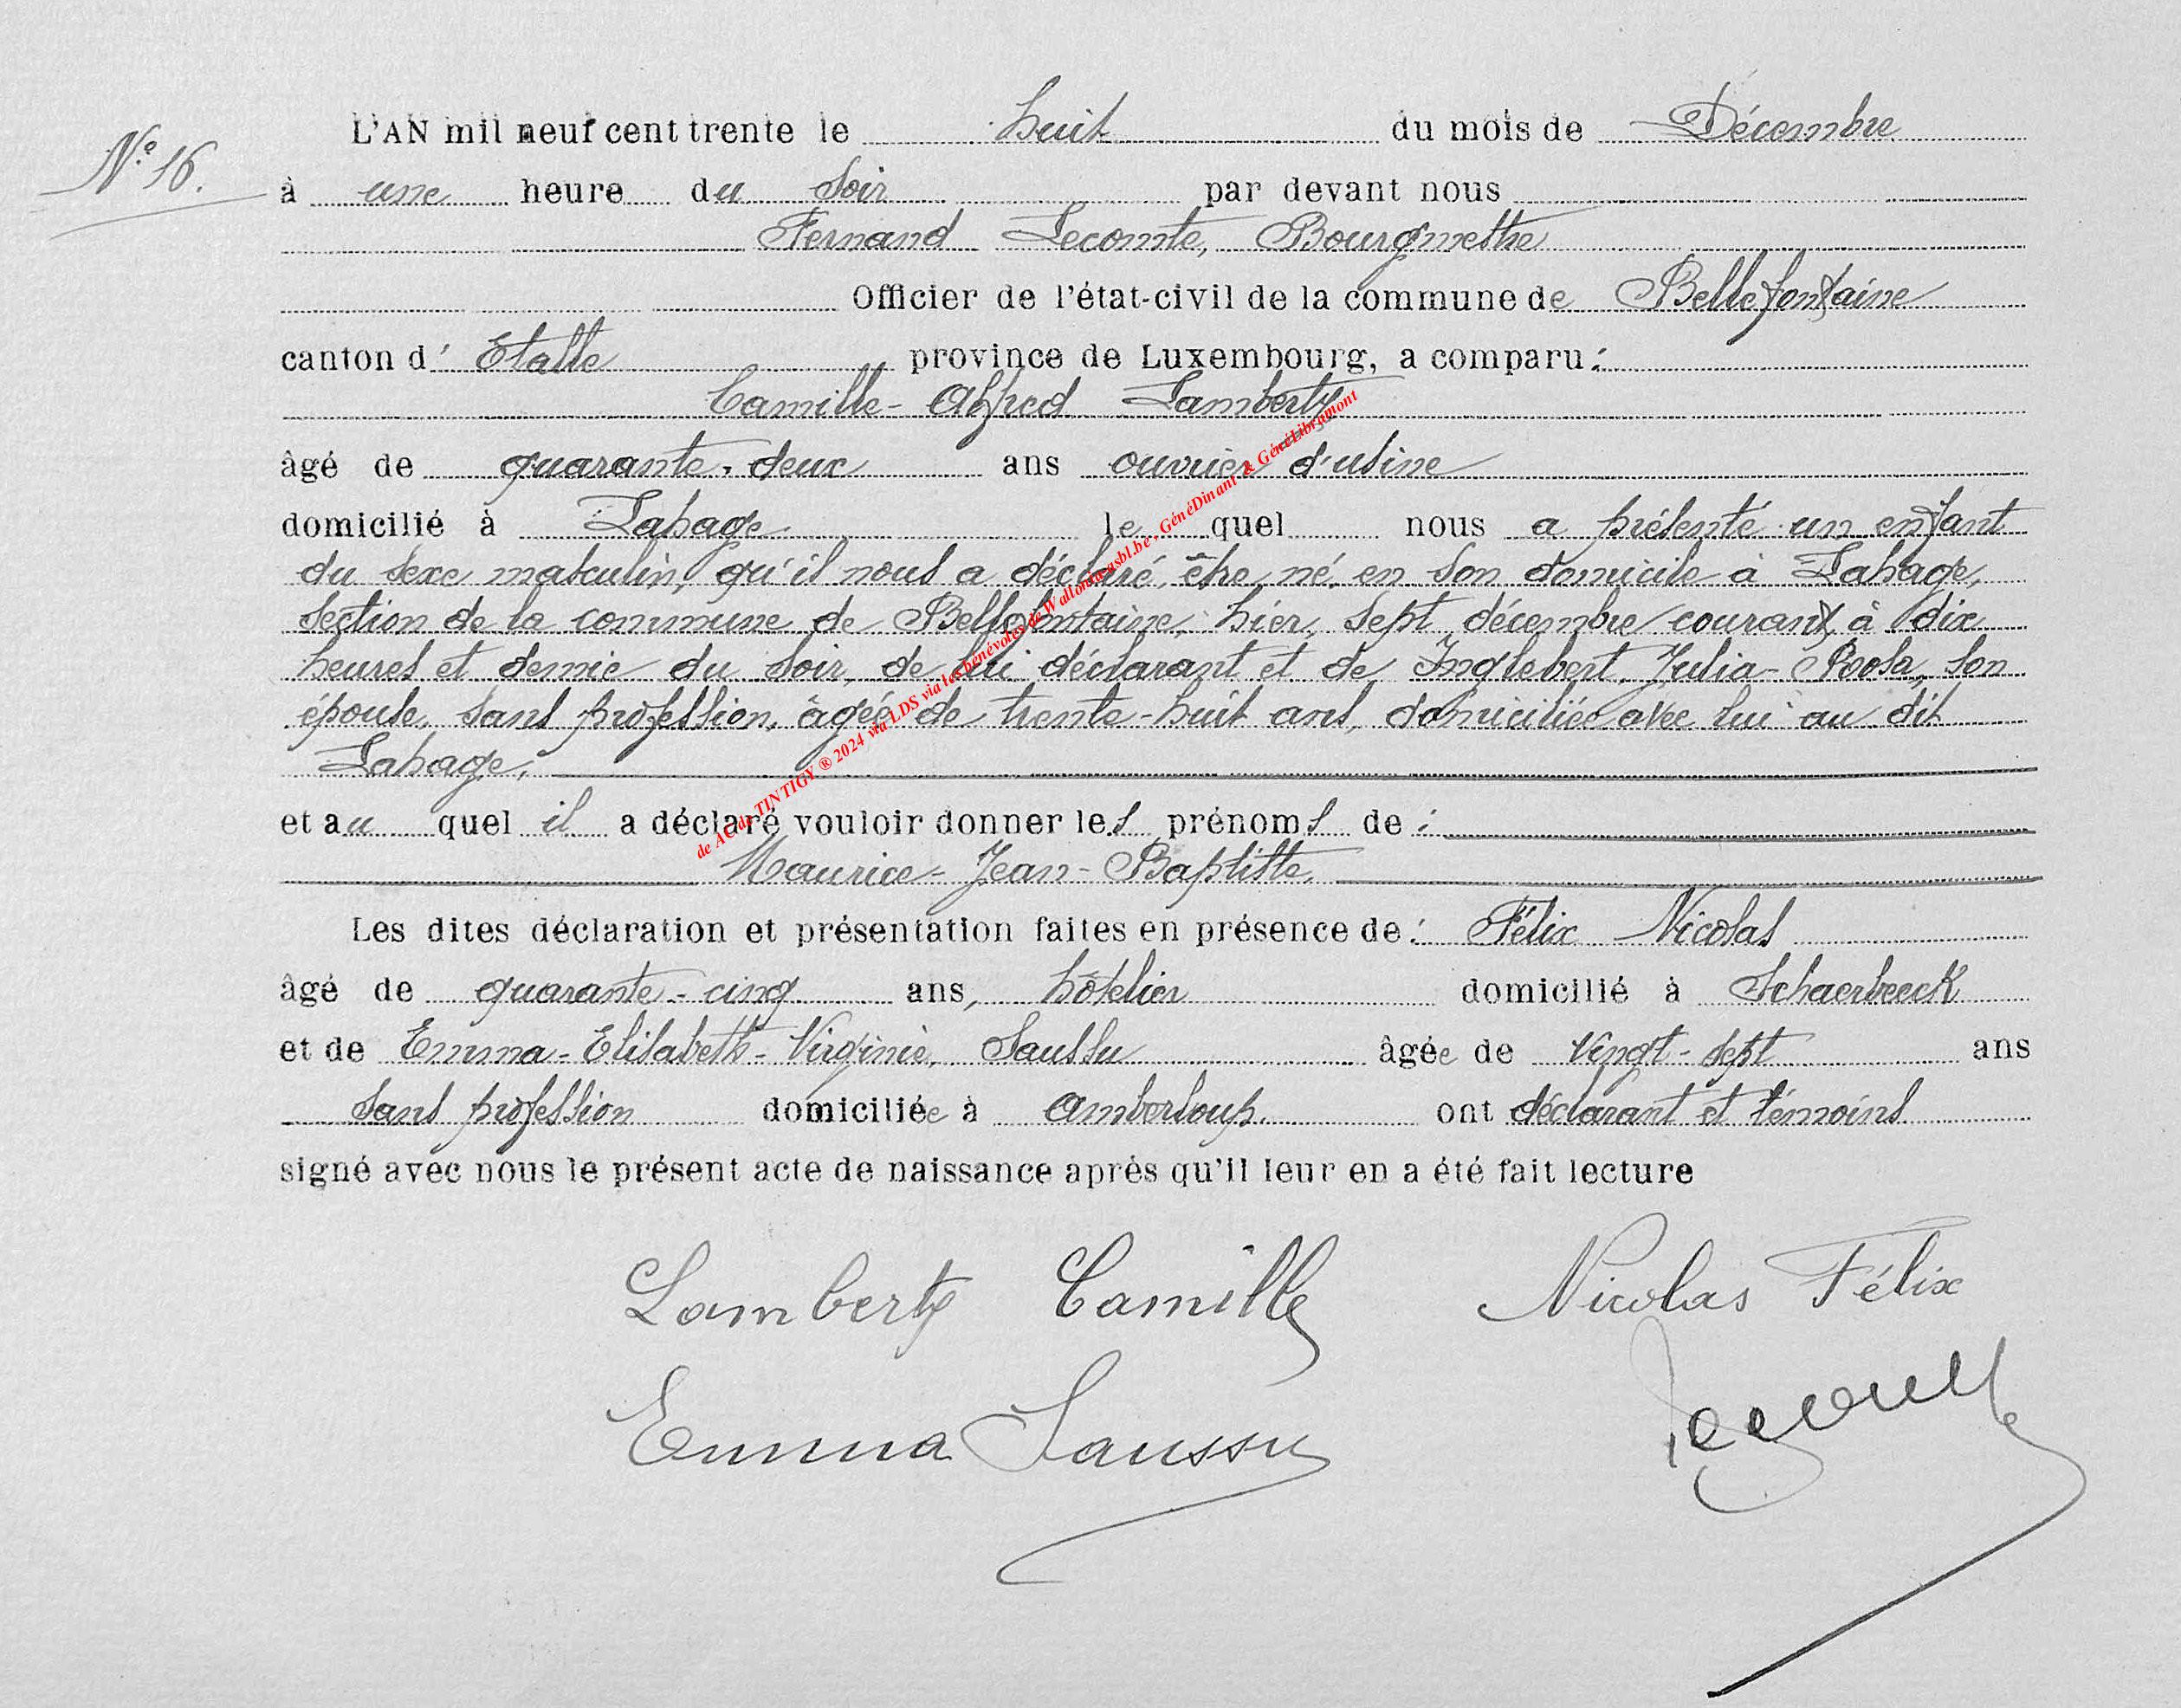 N° 16.
L'AN mil neuf cent trente le huit du mois de Décembre
à une heure du soir par devant nous
Fernand Lecomte, Bourgmestre
Officier de l'état-civil de la commune de Bellefontaine
canton d' Etalle province de Luxembourg, a comparu :
Camille-Alfred Lamberty
âgé de quarante-deux ans ouvrier d'usine
domicilié à Lahage le quel nous a présenté un enfant
du sexe masculin, qu'il nous a déclaré être né en son domicile à Lahage,
section de la commune de Bellefontaine, hier, sept décembre courant, à dix
heures et demie du soir, de lui déclarant et de Inglebert, Julia-Roosa, son
épouse, sans profession, âgée de trente-huit ans, domiciliée avec lui au dit
Lahage,
et au quel il a déclaré vouloir donner les prénoms de :
Maurice-Jean-Baptiste.
Les dites déclaration et présentation faites en présence de : Félix Nicolas
âgé de quarante-cinq ans, hôtelier domicilié à Schaerbeeck
et de Emma-Elisabeth-Virginie, Saussu âgée de vingt-sept ans
sans profession domiciliée à Amberloup. ont déclarant et témoins
signé avec nous le présent acte de naissance après qu'il leur en a été fait lecture
Lamberty Camille Nicolas Félix
Emma Saussu
de AC de TINTIGY ® 2024 via LDS via les bénévoles de Wallonia-asbl.be , GénéDinant & GénéLibramont